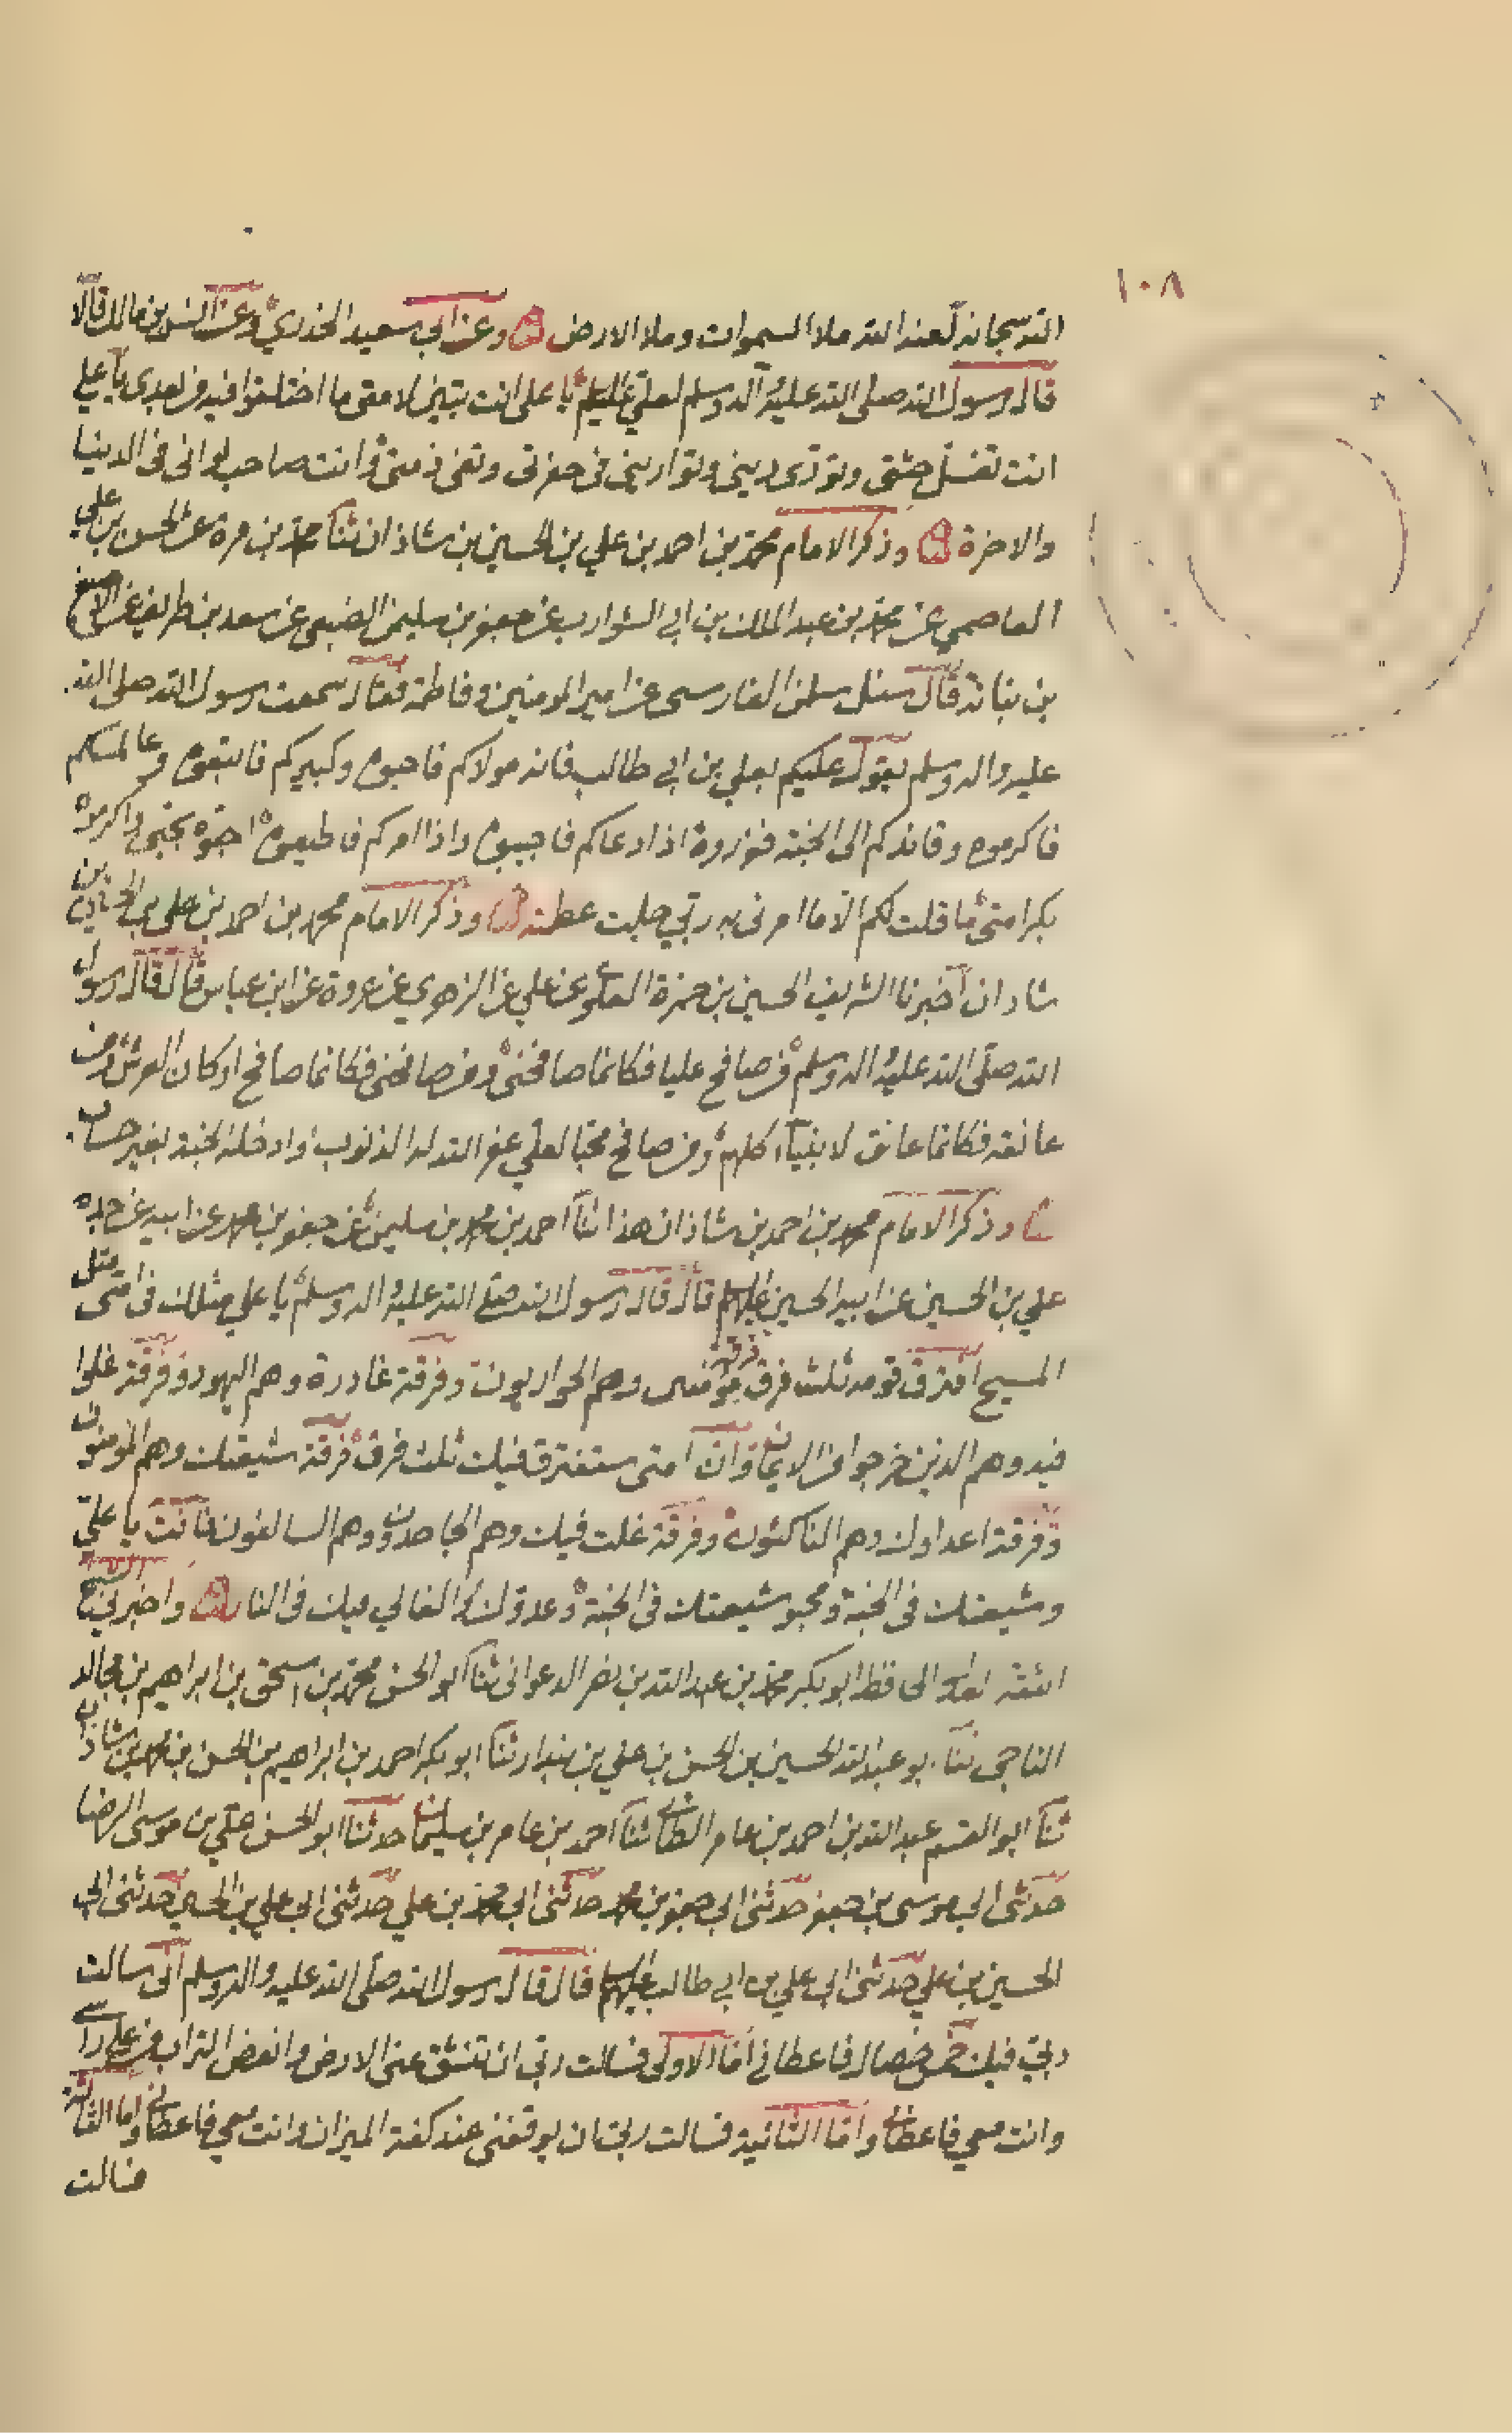 ١٠٨
الله سبحانه لعنه الله ملا السموات وملا الارض وعن ابي سعيد الخدري وعن انس بن مالك قالا
قال رسول الله صلى الله عليه وآله وسلم لعلي عليه السلم يا علي انت تبين لامتي ما اختلفوا فيه من بعدي يا علي
انت تغسل جثتي وتؤدي ديني وتواريني في حفرتي وتفي ذمتي وانت صاحب لوائي في الدنيا
والاخرة وذكر الامام محمد بن احمد بن علي بن الحسين بن شاذان ثنا محمد بن مرة عن الحسن بن علي
العاصمي عن محمد بن عبد الملك بن ابي الشوارب عن جعفر بن سليمن الضبعي عن سعد بن طريف عن الاصبغ
بن نباتة قال سئل سلمن الفارسي عن امير المومنين وفاطمة فقال سمعت رسول الله صلى الله
عليه واله وسلم يقول عليكم بعلي بن ابي طالب فانه مولاكم فاحبوه وكبيركم فاتبعوه وعالمكم
فاكرموه وقائدكم الى الجنة فعزروه اذا دعاكم فاجيبوه واذا امركم فاطيعوه احبوه بحبي واكرموه
بكرامتي ما قلت لكم الا ما امرني به ربي جلت عظمته وذكر الامام محمد بن احمد بن علي بن الحسين بن
شاذان اخبرنا الشريف الحسين بن حمزة العلوي عن علي عن الزهري عن عروة عن ابن عباس قال قال رسول
الله صلى الله عليه واله وسلم من صافح عليا فكانما صافحني ومن صافحني فكانما صافح اركان العرش ومن
عانقه فكانما عانق الانبياء كلهم ومن صافح محبا لعلي غفر الله له الذنوب وادخله الجنة بغير حساب
وذكر الامام محمد بن احمد بن شاذان هذا ثنا احمد بن محمد بن سليمن عن جعفر بن محمد عن ابيه عن جده
علي بن الحسين عن ابيه الحسين عليهم السلم قال قال رسول الله صلى الله عليه واله وسلم يا علي مثلك في امتي مثل
المسيح افترق قومه ثلث فرق فرقة مؤمنون وهم الحواريون وفرقة غادرة وهم اليهود وفرقة غلوا
فيه وهم الذين خرجوا من الايمان وان امتي ستفترق فيك ثلث فرق فرقة شيعتك وهم المؤمنون
وفرقة اعداوك وهم الناكثون وفرقة غلت فيك وهم الجاحدون وهم السالفون فانت يا علي
وشيعتك في الجنة ومحبو شيعتك في الجنة وعدوك والغالي فيك في النار واخبرني الشيخ
الثقة الحافظ ابو بكر محمد بن عبد الله بن نصر الدعواني ثنا ابو الحسن محمد بن اسحق بن ابراهيم بن مخالد
الناجي ثنا ابو عبد الله الحسين بن الحسن بن علي بن بندار ثنا ابو بكر احمد بن ابراهيم بن الحسن بن محمد بن شاذان
ثنا ابو القسم عبد الله بن احمد بن عامر الطائي ثنا احمد بن عامر بن سليمان حدثنا ابو الحسن علي بن موسى الرضا
حدثني ابي موسى بن جعفر حدثني ابي جعفر بن محمد حدثني ابي محمد بن علي حدثني ابي علي بن الحسين حدثني ابي
الحسين بن علي حدثني ابي علي بن ابي طالب عليهم السلم قال قال رسول الله صلى الله عليه واله وسلم اني سالت
ربي فيك خمس خصال فاعطاني اما الاولى فسالت ربي ان تنشق عني الارض وانفض التراب عن راسي
وانت معي فاعطاني واما الثانية فسالت ربي ان يوقفني عند كفة الميزان وانت معي فاعطاني واما الثالثة
فسالت